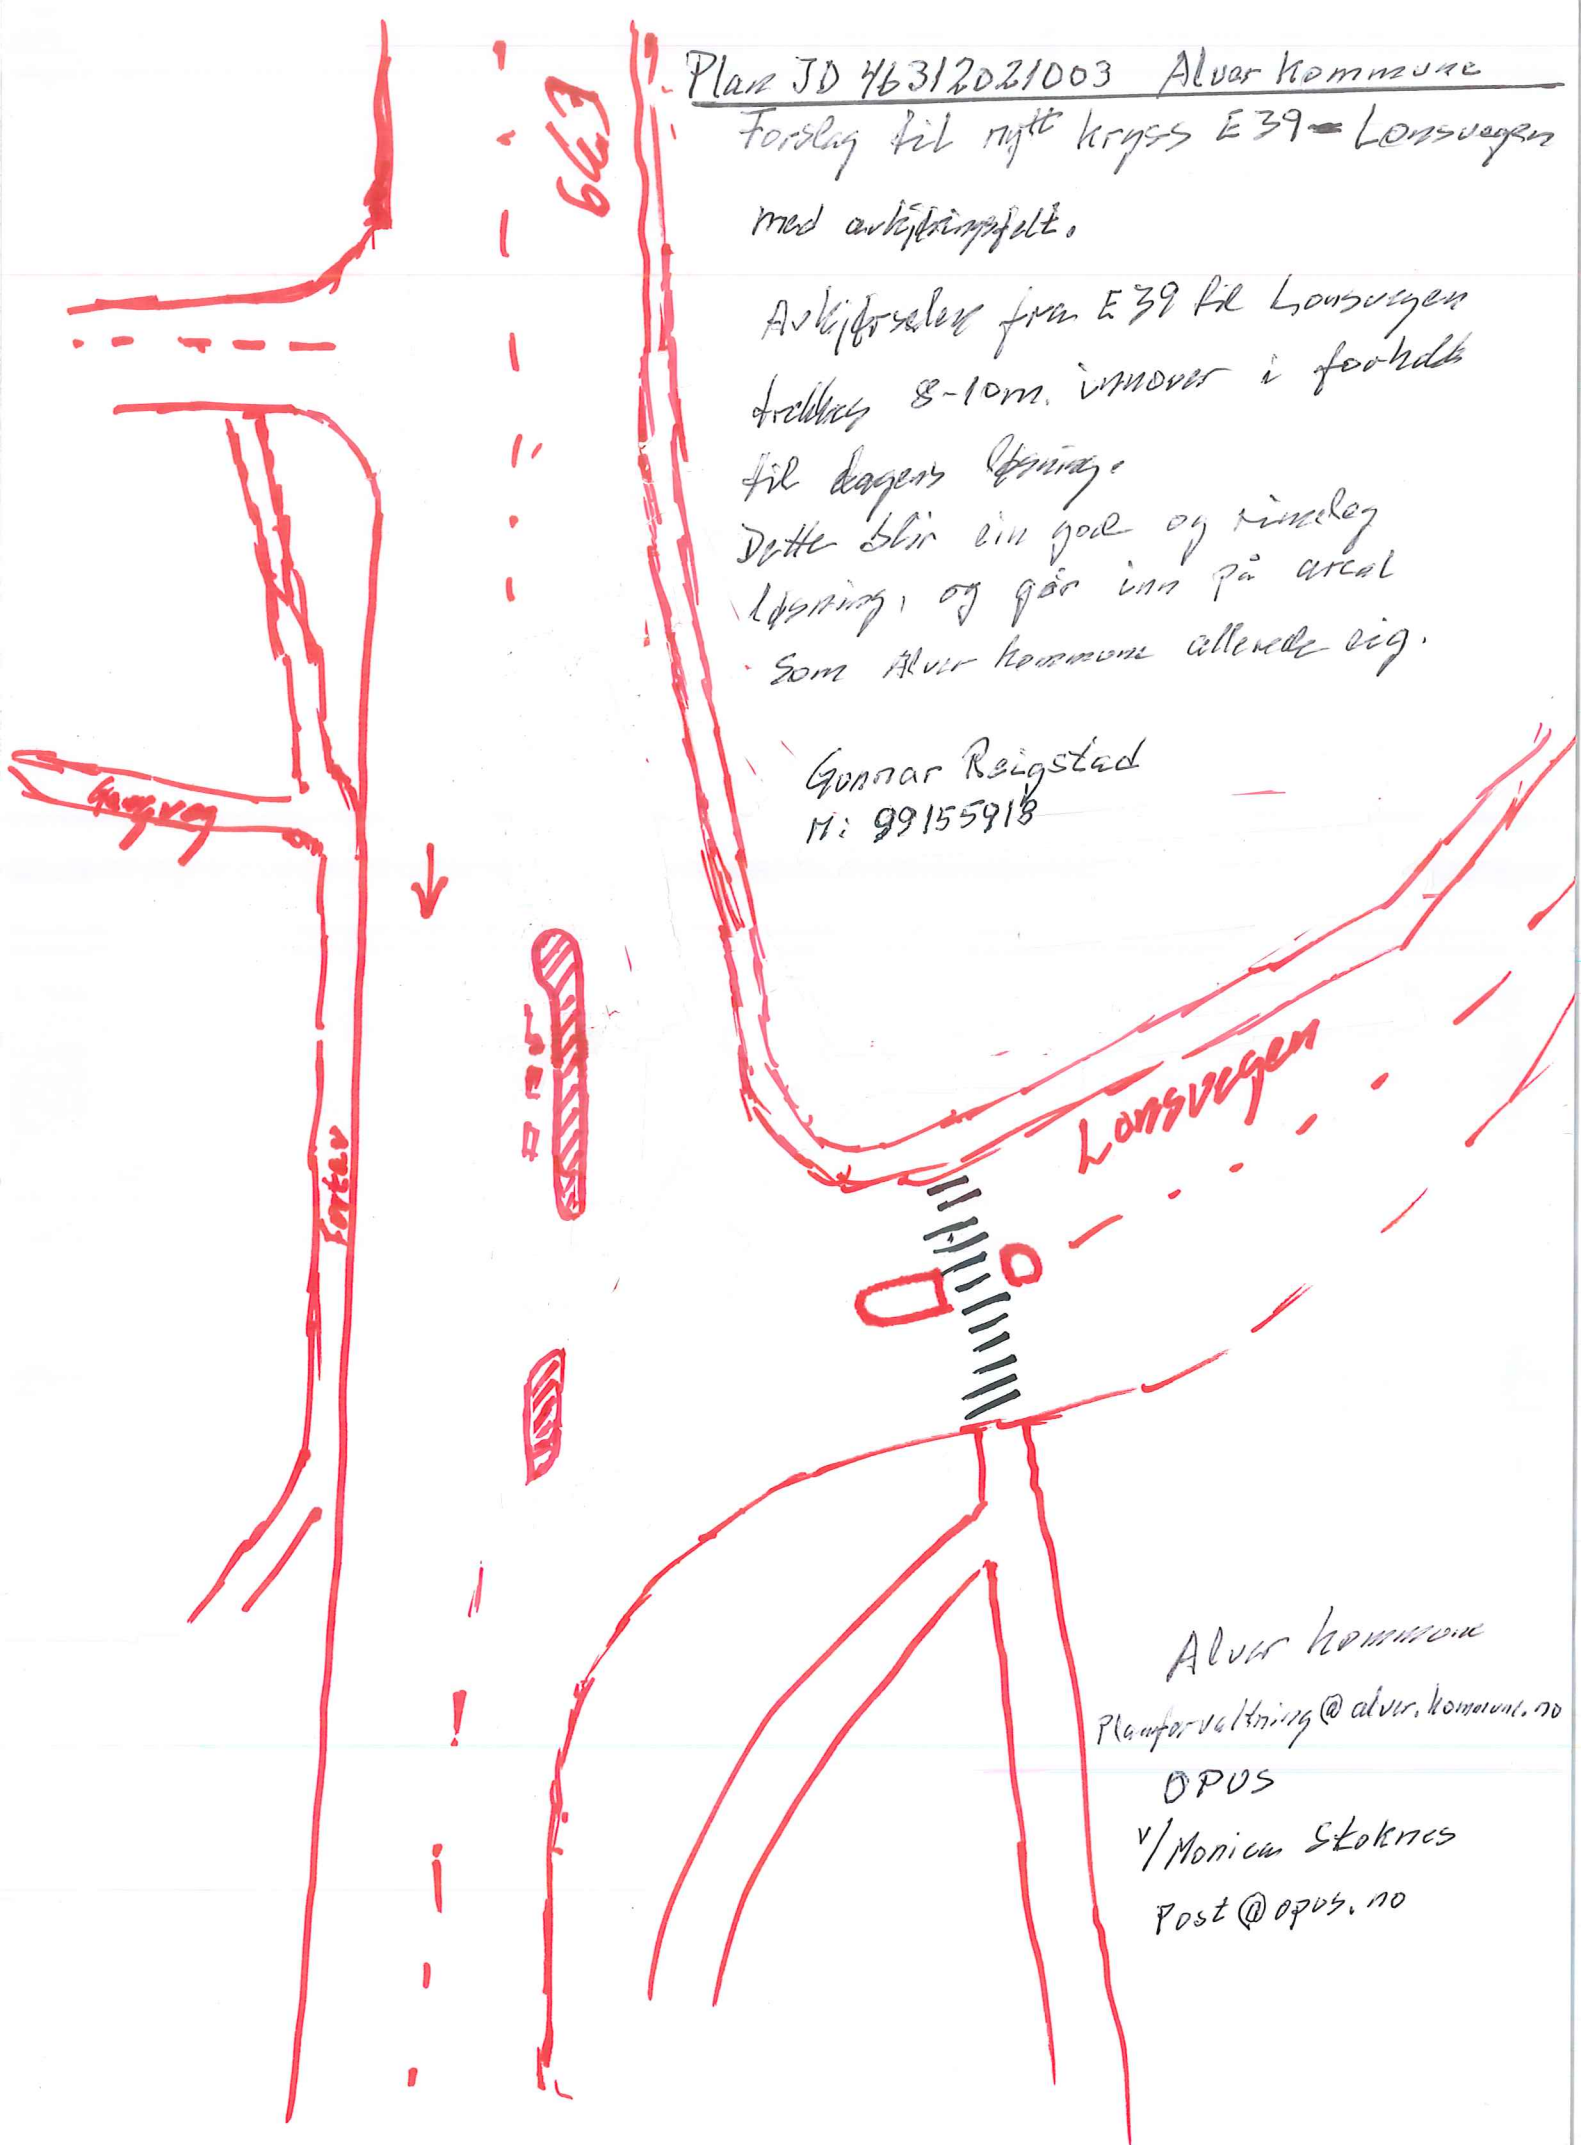 Plan ID 46312021003 Alver Kommune
Forslag til nytt kryss E39 - Lonsvegen
med avkjøringsfelt.
Avkjørselen fra E39 til Lonsvegen
trekkes 8-10m. innover i forhold
til dagens løsning.
Dette blir ein god og rimeleg
løsning, og går inn på areal
som Alver kommune allerede eig.
Gunnar Reigstad
M: 99155918
E39
Gangveg
Fortav
Lonsvegen
Alver kommune
Planforvaltning@alver.kommune.no
OPUS
v/Monica Stoknes
Post@opus.no